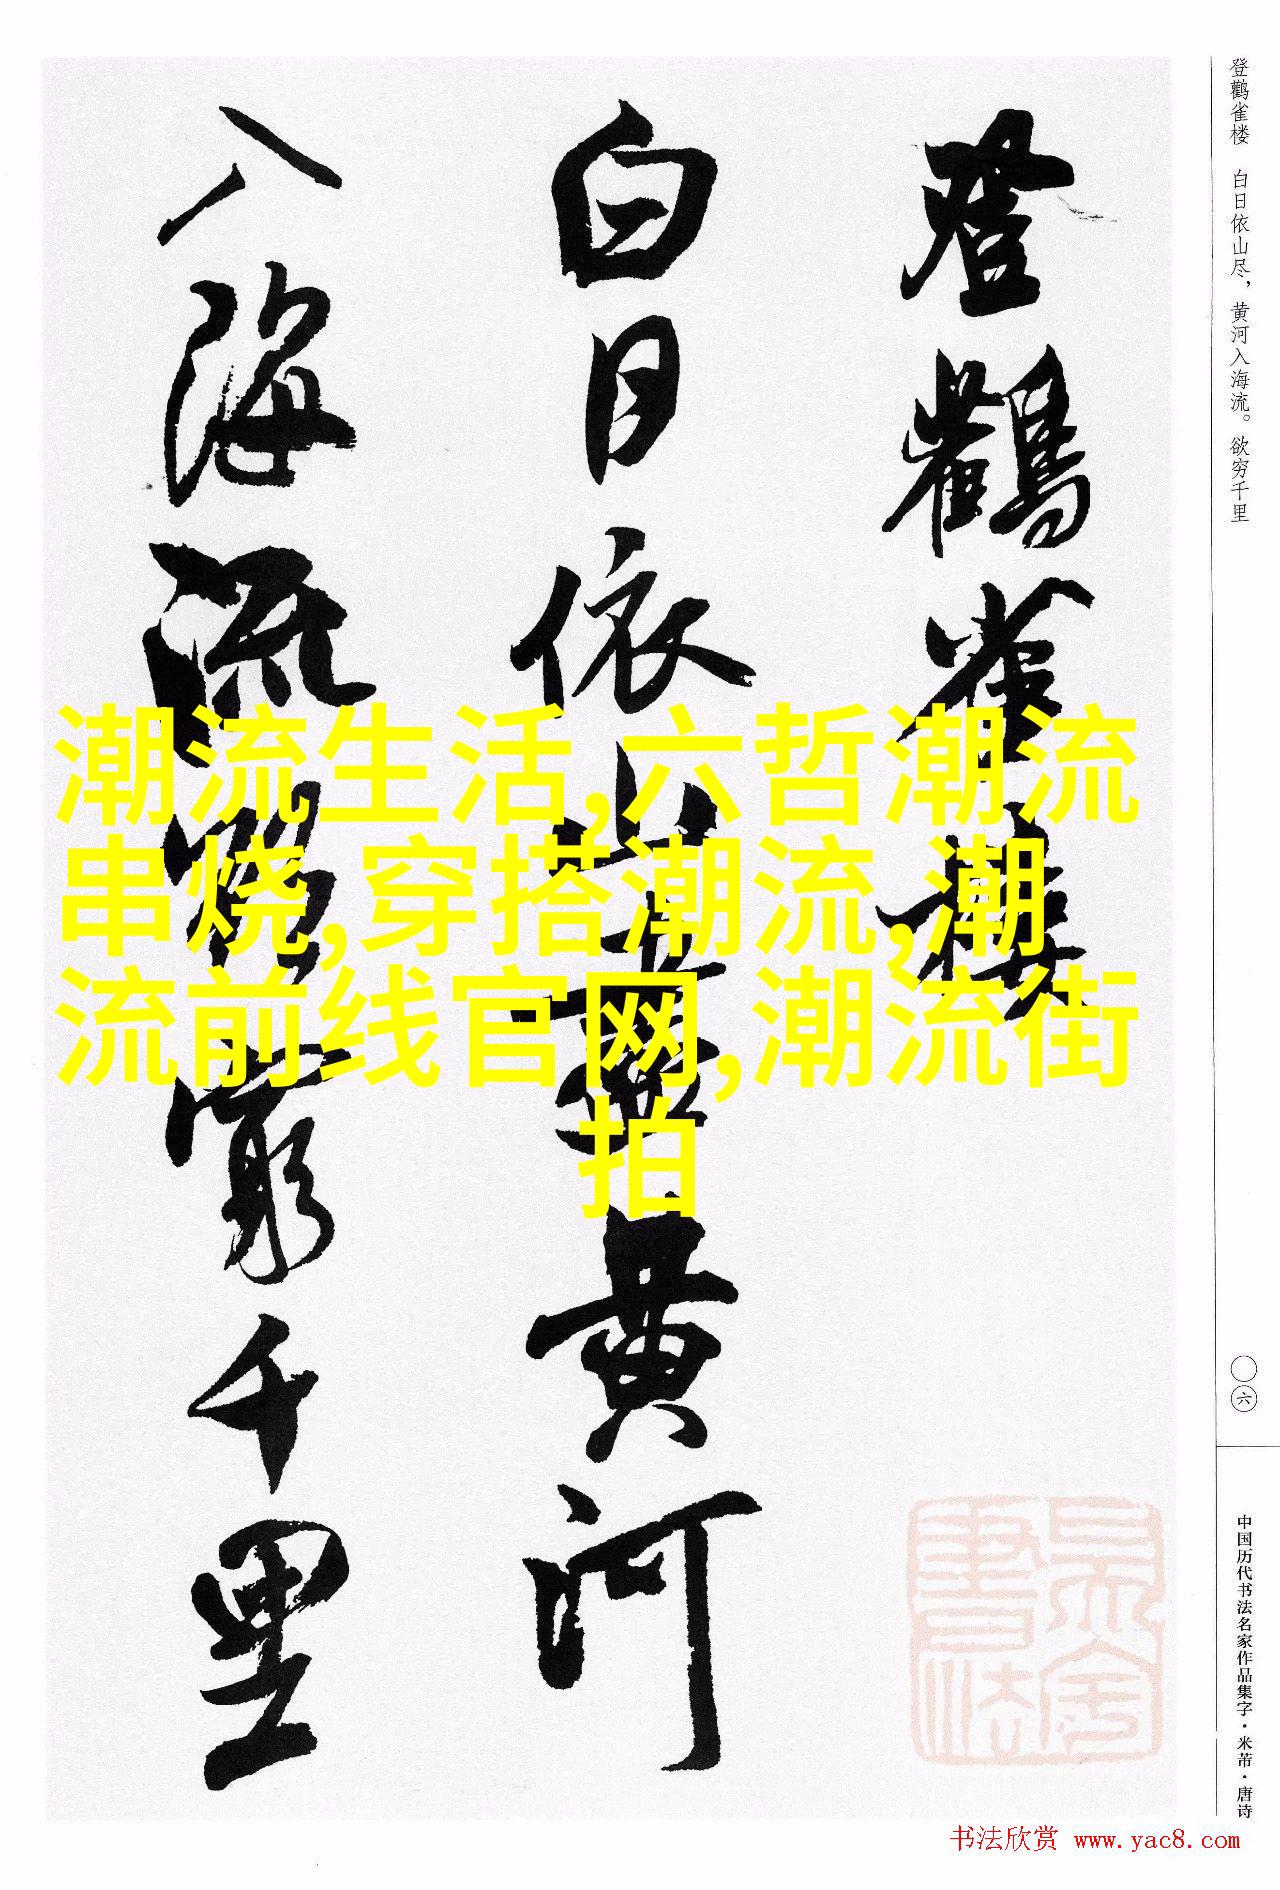 登鸛雀樓
白日依山盡黃河
入海流欲窮千里
潮流生活,六哲潮流
串烧,穿搭潮流,潮
流前线官网,潮流街
拍
登鹳雀楼 白日依山尽，黄河入海流。欲穷千里
〇六
中国历代书法名家作品集字·米芾·唐诗
书法欣赏 www.yac8.com